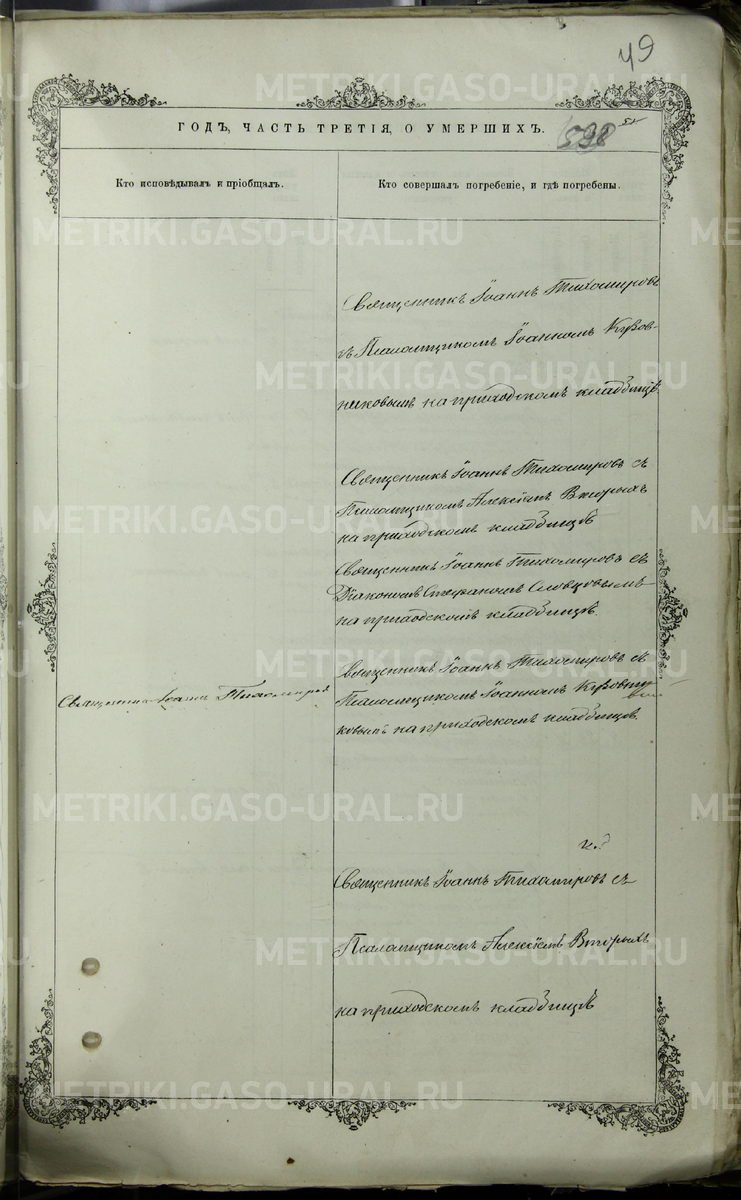 49
ГОДЪ, ЧАСТЬ ТРЕТІЯ, О УМЕРШИХЪ.
598
Кто исповѣдывалъ и пріобщалъ.
Кто совершалъ погребеніе, и гдѣ погребены.
Священникъ Іоаннъ Тихомировъ
съ Псаломщикомъ Іоанномъ Кузов-
никовымъ на приходскомъ кладбищѣ.
Священникъ Іоаннъ Тихомировъ съ
Псаломщикомъ Алексѣемъ Вторыхъ
на приходскомъ кладбищѣ
Священникъ Іоаннъ Тихомировъ съ
Діакономъ Стефаномъ Словцовымъ
на приходскомъ кладбищѣ.
Священникъ Іоаннъ Тихомировъ
Священникъ Іоаннъ Тихомировъ съ
Псаломщикомъ Іоанномъ
ковымъ на приходскомъ кладбищѣ.
Священникъ Іоаннъ Тихомировъ съ
Псаломщикомъ Алексѣемъ Вторыхъ
на приходскомъ кладбищѣ
METRIKI.GASO-URAL.RU